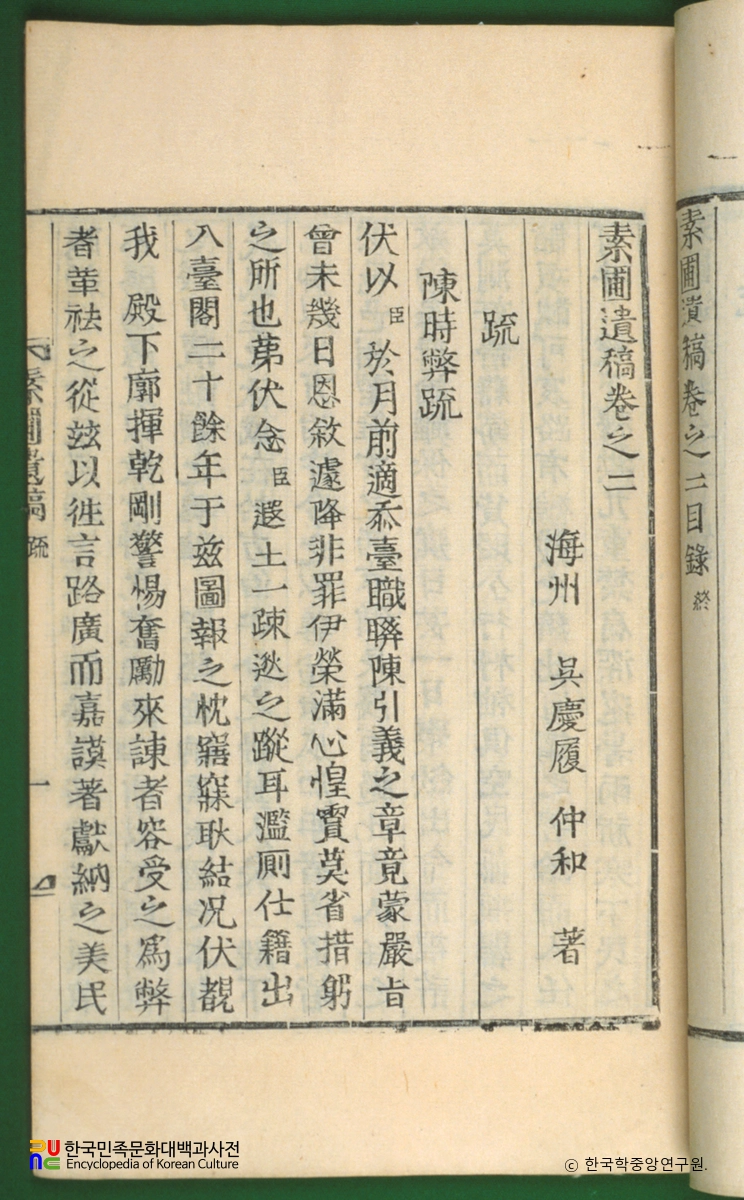 素圃遺稿卷之二目錄 終
素圃遺稿卷之二
海州 吳慶履 仲和 著
疏
陳時弊疏
伏以臣於月前適忝臺職聯陳引義之章竟蒙嚴旨
曾未幾日恩敘遽降非罪伊榮滿心惶霣莫省措躬
之所也苐伏念臣遐土一疎逖之蹤耳濫厠仕籍出
入臺閣二十餘年于玆圖報之忱寤寐耿結况伏覩
我 殿下廓揮乾剛警惕奮勵來諫者容受之爲弊
者革祛之從玆以徃言路廣而嘉謨著獻納之美民
素圃遺稿 疏 一
한국민족문화대백과사전
Encyclopedia of Korean Culture
© 한국학중앙연구원.